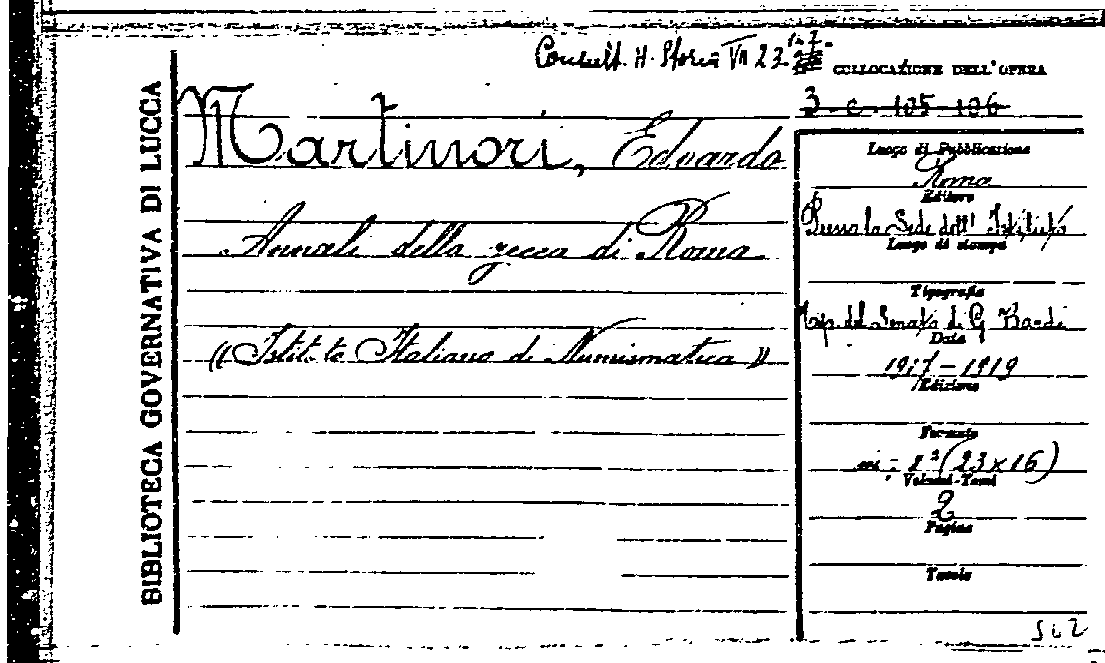 Consult. H. Storia VII 23
COLLOCAZIONE DELL'OPERA
3-c-105-106
BIBLIOTECA GOVERNATIVA DI LUCCA
Martinori, Edoardo
Annali della zecca di Roma
(( Istituto Italiano di Numismatica ))
Luogo di Pubblicazione
Roma
Editore
Presso la Sede dell' Istituto
Luogo di stampa
Tipografia
Tip. del Senato di G. Bardi
Data
1917-1919
Edizione
Formato
in-8° (23x16)
Volumi-Tomi
2
Pagine
Tavole